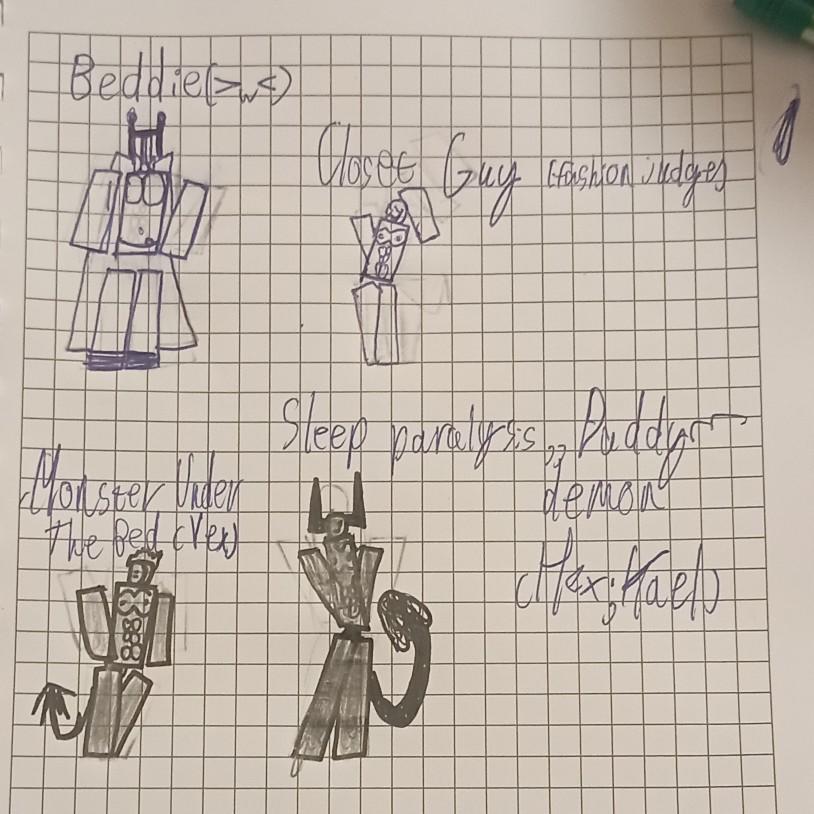 Beddie(>w<)
Closet Guy (fashion judge)
Sleep paralysis ,,Daddy"
demon
Monster Under
The Bed (Vex)